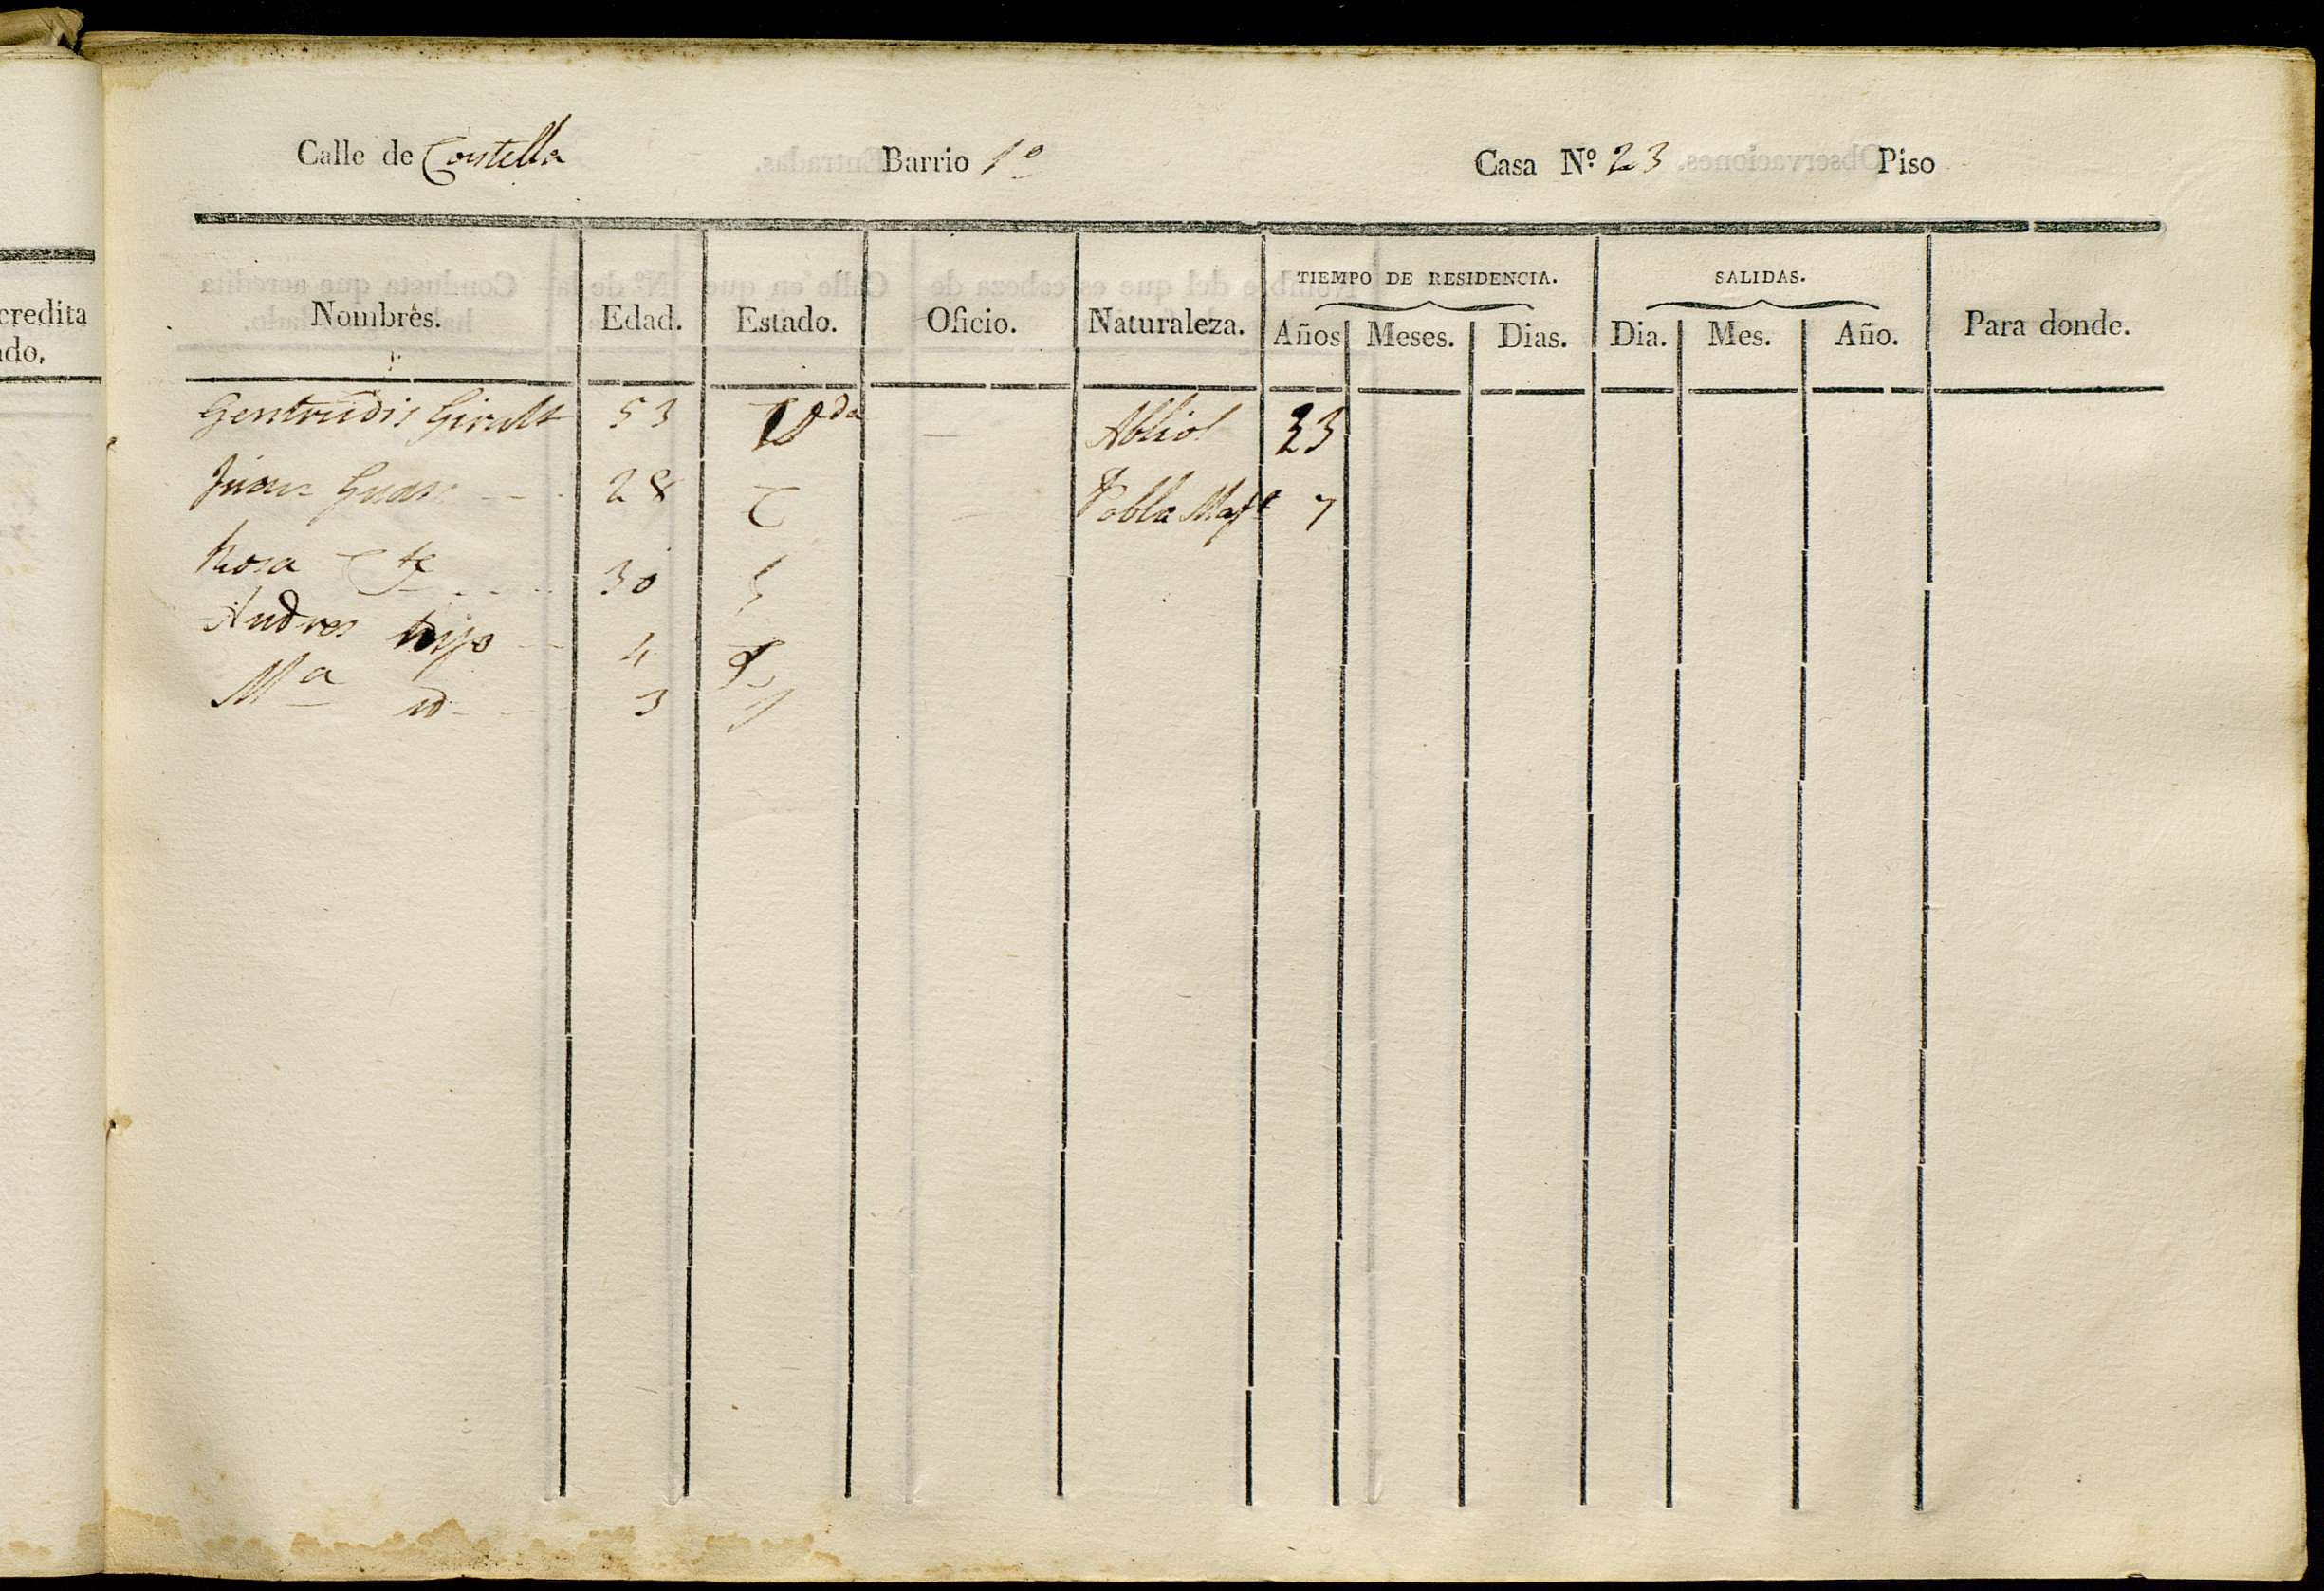 credita
ado,
Calle de Costella Barrio 1º Casa Nº 23 Piso
TIEMPO DE RESIDENCIA. SALIDAS.
Nombres. Edad. Estado. Oficio. Naturaleza. Años Meses. Dias. Dia. Mes. Año. Para donde.
Gertrudis Giralt 53 Vda — Albiol 23
28 C Pobla 7
Rosa 30
Andres hijo 4
Mª id 3